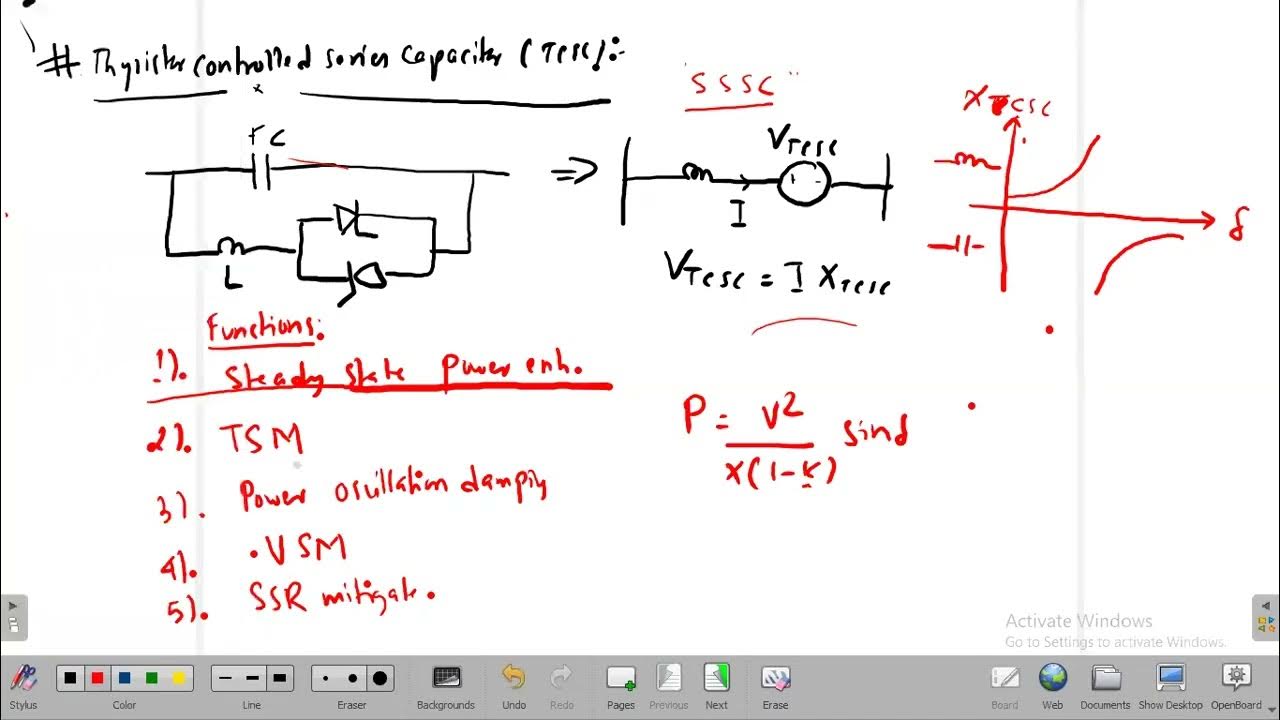 # Thyrister controlled series capaciter (TCSC):-
"SSSC"
XTCSC
FC
VTCSC
=>
+ -
I
L
δ
VTCSC = I XTCSC
Functions:
1). Steady state power enh.
2). TSM
3). Power oscillation damping
4). VSM
5). SSR mitigate.
P = V2 sinδ
X(1-k)
Activate Windows
Go to Settings to activate Windows.
Stylus
Color
Line
Eraser
Backgrounds
Undo
Redo
Pages
Previous
Next
Erase
Board
Web
Documents
Show Desktop
OpenBoard